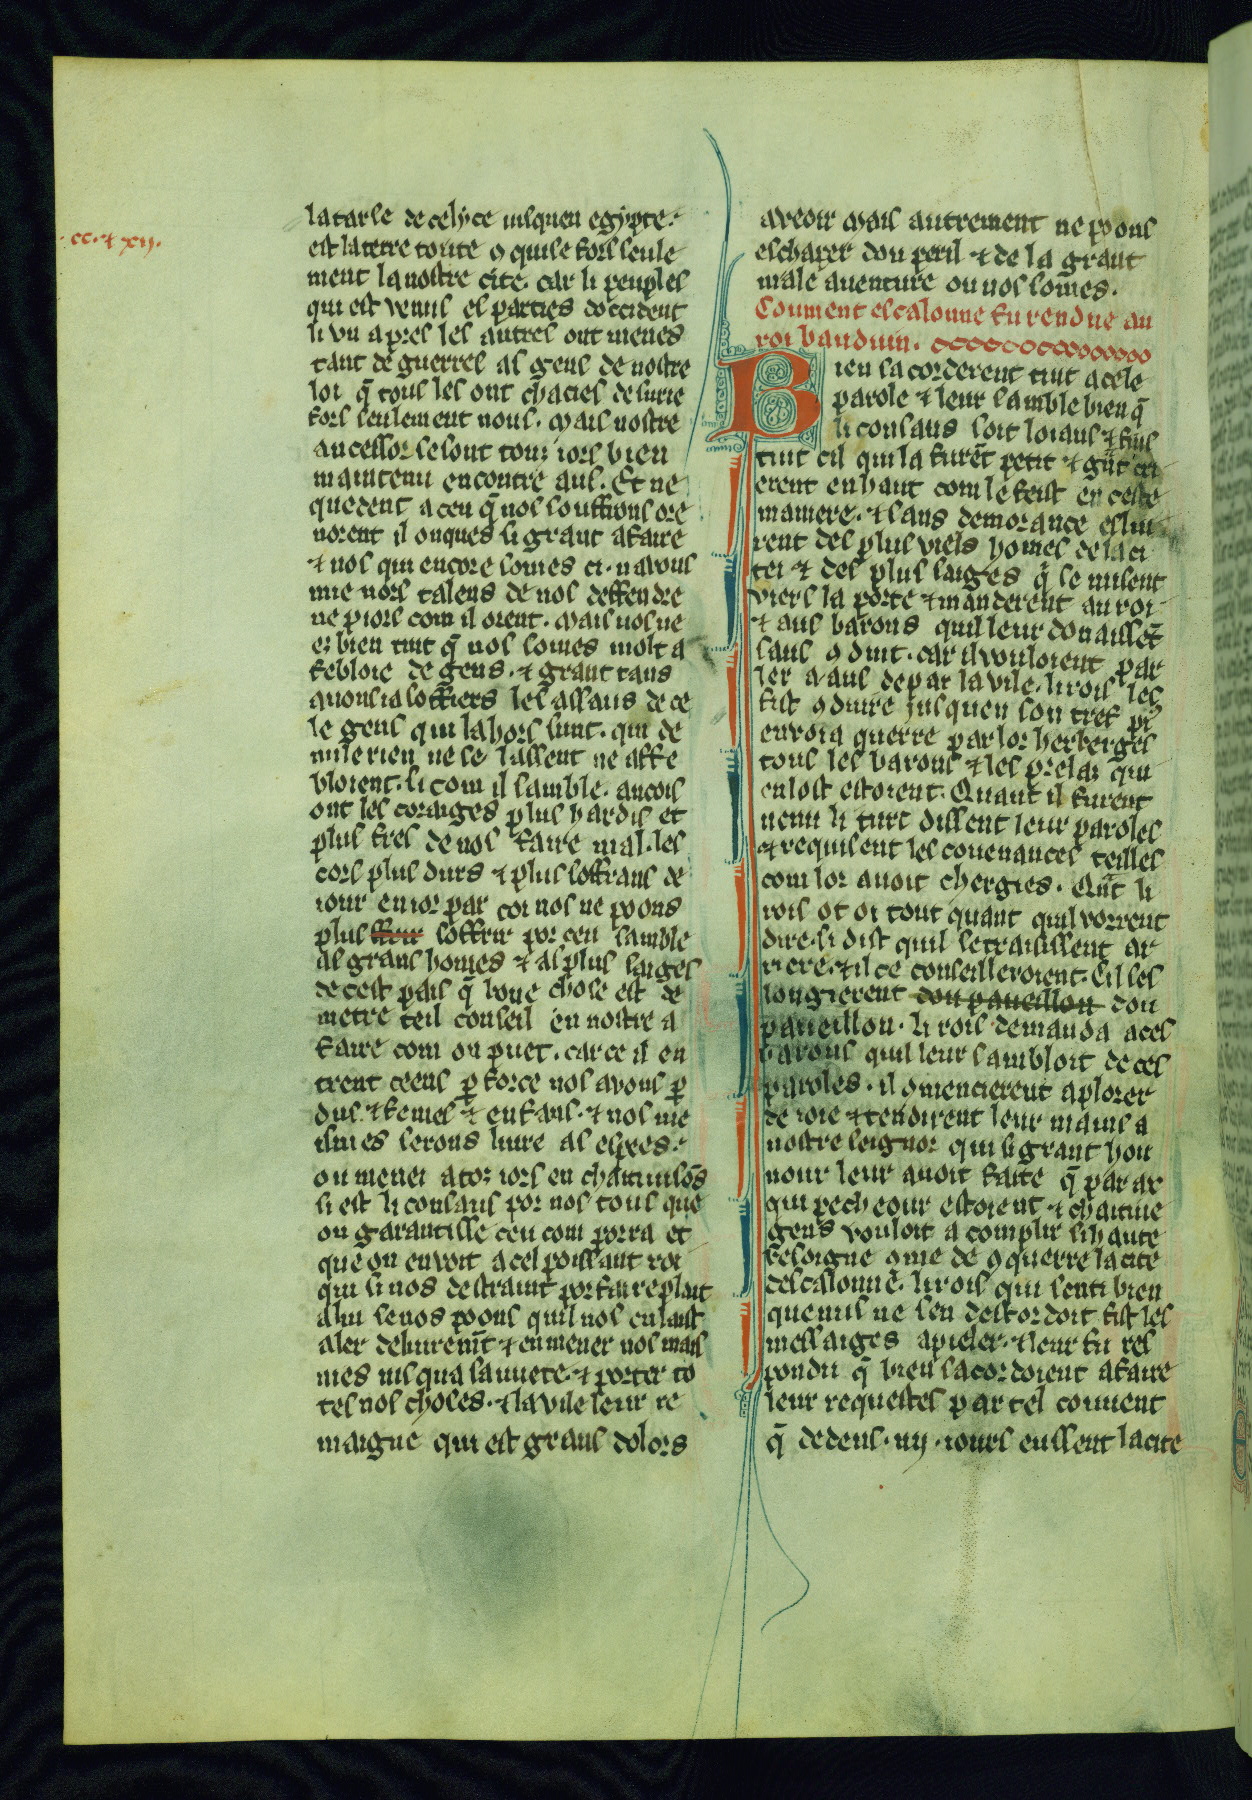 .cc.⁊ xij.
la tarse de celyce iusquen egypte.
est la terre toute ꝯquise fors seule
ment la nostre cite. car li peuples
qui est venus es parties doccident
li vn apres les autres ont menes
tant de guerres as gens de nostre
loi q̄ tous les ont chacies de surie
fors seulement nous. Mais nostre
ancessor se sont touz iors bien
maintenu encontre aus. Et ne
quedent a ceu q̄ nos souffrons ore
norent il onques si grant afaire
⁊ nos qui encore somes ci. nauons
mie nors talens de nos deffendre
ne piors com il orent. Mais nos ue
ez bien tuit q̄ nos somes molt a
febloie de gens. ⁊ grant tans
auons ia soffers les assaus de ce
le gens qui la hors sunt. qui de
nule rien ne se lassent ne affe
bloient. si com il samble. ancois
ont les coraiges plus hardis et
plus fres de nos faire mal. les
cors plus durs ⁊ plus soffrans de
iour en ior par coi nos ne poons
plus soffrir por ceu samble
as grans homes ⁊ as plus saiges
de cest pais q̄ bone chose est de
metre teil conseil en nostre a
faire com on puet. car ce il en
trent ceens ꝑ force nos avons ꝑ
dus. ⁊ femes ⁊ enfans. ⁊ nos me
ismes serons liure as espees.
ou menei a toz iors en chaitiuisōs
si est li consaus por nos tous que
on garantisse ceu com porra et
que on envoit a cel poissant roi
qui si nos destraint por faire plait
a lui se nos poons quil nos en laist
aler deliurem̄t ⁊ en mener nos mais
nies iusqua sauuete. ⁊ porter to
tes nos choses. ⁊ la vile leur re
maigne qui est grans dolors
aveoir Mais autrement ne poons
eschaper dou peril ⁊ de la grant
male auenture ou nos somes.
Coument escalonne fu rendue au
roi bauduin.
Bien sacorderent tuit a cele
parole ⁊ leur samble bien q̄
li consaus soit loiaus ⁊ fius
tuit cil qui la furēt petit ⁊ gūt cri
erent en haut com le feist en ceste
maniere. ⁊ sans demorance eslui
rent des plus viels homes de la ci
tei ⁊ des plus saiges q̄ se misent
viers la porte ⁊ manderent au roi
⁊ aus barons quil leur donaissēt
sauf ꝯduit. car il vouloient par
ler a aus depar la vile. li rois les
fist ꝯduire jusquen son tref
envoia querre par lor herberges
tous les barons ⁊ les prelaz qui
en lost estoient. Quant il furent
uenu li turc dissent leur paroles
⁊ requisent les couenances teilles
com lor auoit chergies. Qūt li
rois ot oi tout quant quil vorrent
dire. li dist quil se traissent ar
riere. ⁊ il ce conseilleroient. Cil ses
longierent dou paueillon dou
paueillon. li rois demanda a ces
barons quil leur sambloit de ces
paroles. il ꝯmencierent a plorer
de ioie ⁊ tendirent leur mains a
nostre seignor qui si grant hon
nour leur auoit faite q̄ par ax
qui pecheour estoient ⁊ chaitiue
gens vouloit a complir si haute
besoigne ꝯme de ꝯquerre la cite
descalonne. li rois qui senti bien
que nus ne sen destordoit fist les
messaiges apieler. ⁊ leur fu res
pondu q̄ bien sacordoient a faire
leur requestes par tel couuent
q̄ dedens. iij. iours eussent la cite